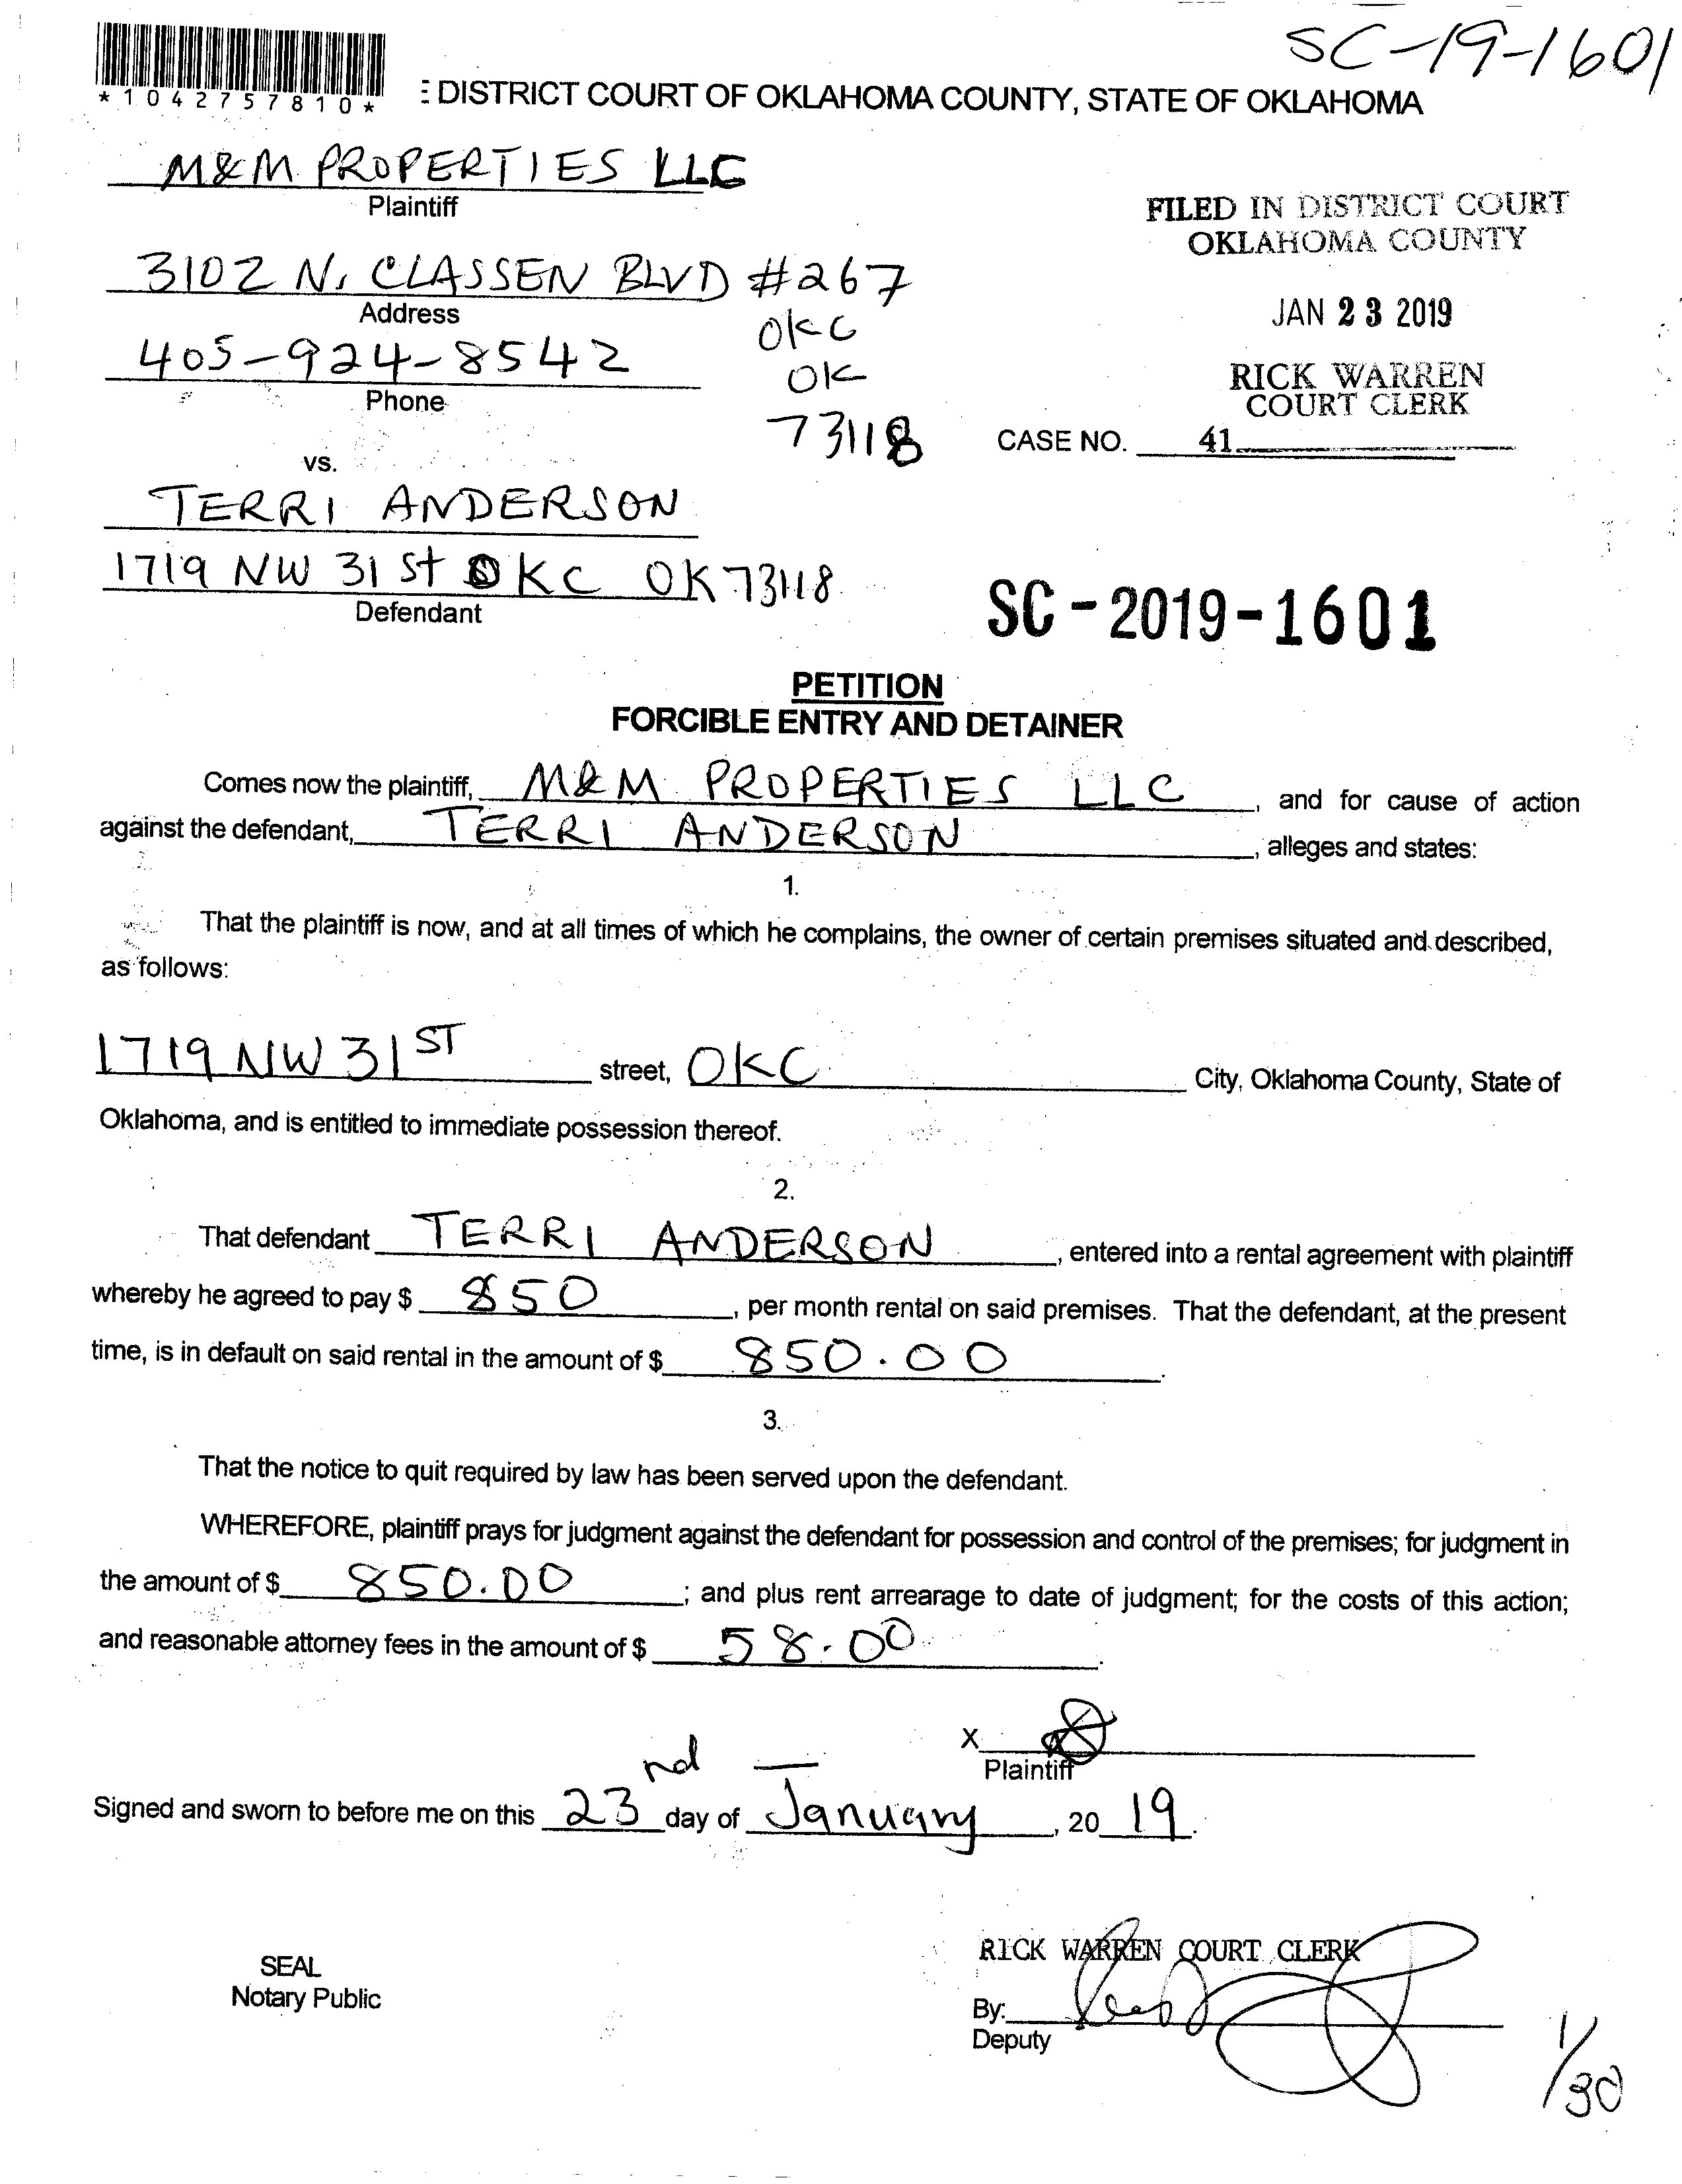 SC-19-1601
*1042757810*
: DISTRICT COURT OF OKLAHOMA COUNTY, STATE OF OKLAHOMA
M&M PROPERTIES LLC
Plaintiff
FILED IN DISTRICT COURT
OKLAHOMA COUNTY
3102 N. CLASSEN BLVD #267
Address
OKC
JAN 23 2019
405-924-8542
Phone
OK
RICK WARREN
COURT CLERK
73118
CASE NO. 41
vs.
TERRI ANDERSON
1719 NW 31 St OKC OK 73118
Defendant
SC-2019-1601
PETITION
FORCIBLE ENTRY AND DETAINER
Comes now the plaintiff, M&M PROPERTIES LLC, and for cause of action
against the defendant, TERRI ANDERSON, alleges and states:
1.
That the plaintiff is now, and at all times of which he complains, the owner of certain premises situated and described,
as follows:
1719 NW 31ST street, OKC City, Oklahoma County, State of
Oklahoma, and is entitled to immediate possession thereof.
2.
That defendant TERRI ANDERSON, entered into a rental agreement with plaintiff
whereby he agreed to pay $ 850, per month rental on said premises. That the defendant, at the present
time, is in default on said rental in the amount of $ 850.00.
3.
That the notice to quit required by law has been served upon the defendant.
WHEREFORE, plaintiff prays for judgment against the defendant for possession and control of the premises; for judgment in
the amount of $ 850.00; and plus rent arrearage to date of judgment; for the costs of this action;
and reasonable attorney fees in the amount of $ 58.00.
X
Plaintiff
Signed and sworn to before me on this 23nd day of January, 20 19.
RICK WARREN COURT CLERK
SEAL
Notary Public
By:
Deputy
1/30